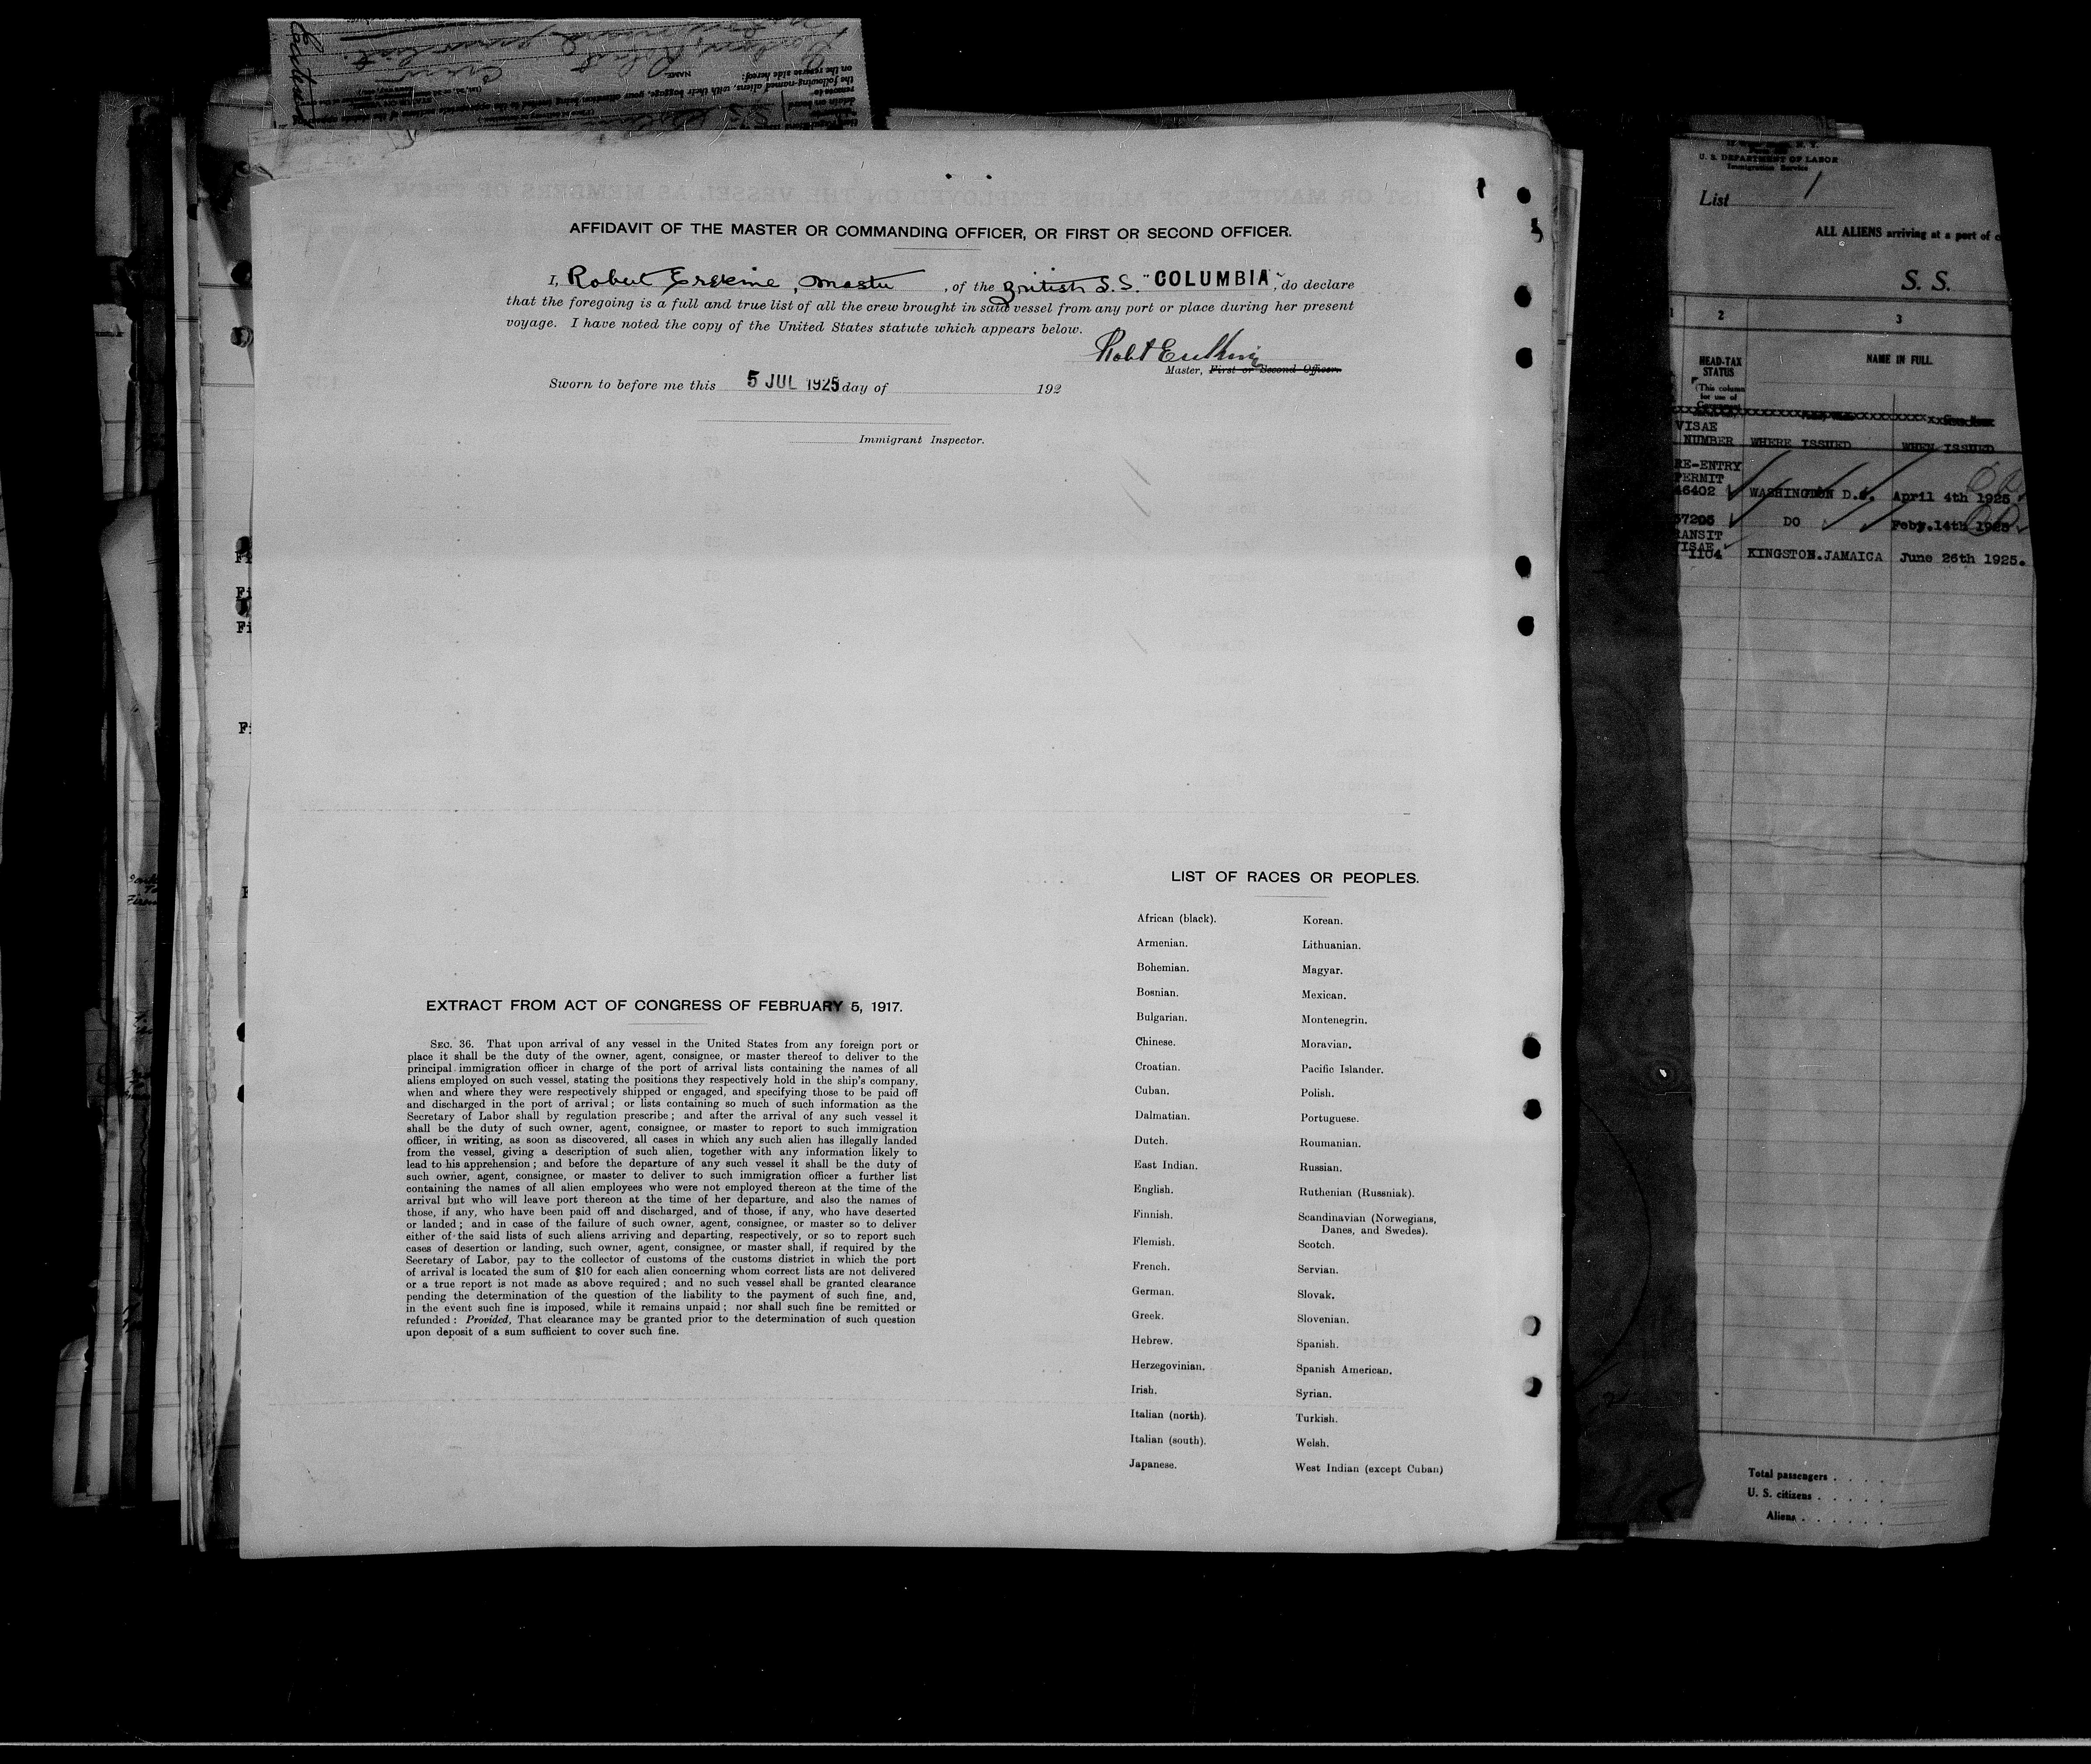 AFFIDAVIT OF THE MASTER OR COMMANDING OFFICER, OR FIRST OR SECOND OFFICER.
I, Robert Erskine, Master, of the British S.S. "COLUMBIA", do declare
that the foregoing is a full and true list of all the crew brought in said vessel from any port or place during her present
voyage. I have noted the copy of the United States statute which appears below.
Robt Erskine
Master, First or Second Officer.
Sworn to before me this 5 JUL 1925 day of 192
Immigrant Inspector.
EXTRACT FROM ACT OF CONGRESS OF FEBRUARY 5, 1917.
SEC. 36. That upon arrival of any vessel in the United States from any foreign port or
place it shall be the duty of the owner, agent, consignee, or master thereof to deliver to the
principal immigration officer in charge of the port of arrival lists containing the names of all
aliens employed on such vessel, stating the positions they respectively hold in the ship's company,
when and where they were respectively shipped or engaged, and specifying those to be paid off
and discharged in the port of arrival; or lists containing so much of such information as the
Secretary of Labor shall by regulation prescribe; and after the arrival of any such vessel it
shall be the duty of such owner, agent, consignee, or master to report to such immigration
officer, in writing, as soon as discovered, all cases in which any such alien has illegally landed
from the vessel, giving a description of such alien, together with any information likely to
lead to his apprehension; and before the departure of any such vessel it shall be the duty of
such owner, agent, consignee, or master to deliver to such immigration officer a further list
containing the names of all alien employees who were not employed thereon at the time of the
arrival but who will leave port thereon at the time of her departure, and also the names of
those, if any, who have been paid off and discharged, and of those, if any, who have deserted
or landed; and in case of the failure of such owner, agent, consignee, or master so to deliver
either of the said lists of such aliens arriving and departing, respectively, or so to report such
cases of desertion or landing, such owner, agent, consignee, or master shall, if required by the
Secretary of Labor, pay to the collector of customs of the customs district in which the port
of arrival is located the sum of $10 for each alien concerning whom correct lists are not delivered
or a true report is not made as above required; and no such vessel shall be granted clearance
pending the determination of the question of the liability to the payment of such fine, and,
in the event such fine is imposed, while it remains unpaid; nor shall such fine be remitted or
refunded: Provided, That clearance may be granted prior to the determination of such question
upon deposit of a sum sufficient to cover such fine.
LIST OF RACES OR PEOPLES.
African (black).
Armenian.
Bohemian.
Bosnian.
Bulgarian.
Chinese.
Croatian.
Cuban.
Dalmatian.
Dutch.
East Indian.
English.
Finnish.
Flemish.
French.
German.
Greek.
Hebrew.
Herzegovinian.
Irish.
Italian (north).
Italian (south).
Japanese.
Korean.
Lithuanian.
Magyar.
Mexican.
Montenegrin.
Moravian.
Pacific Islander.
Polish.
Portuguese.
Roumanian.
Russian.
Ruthenian (Russniak).
Scandinavian (Norwegians,
Danes, and Swedes).
Scotch.
Servian.
Slovak.
Slovenian.
Spanish.
Spanish American.
Syrian.
Turkish.
Welsh.
West Indian (except Cuban)
U. S. DEPARTMENT OF LABOR
Immigration Service
List 1
ALL ALIENS arriving at a port of
S. S.
2 3
HEAD-TAX
STATUS
(This column
for use of
NAME IN FULL.
VISAE
NUMBER WHERE ISSUED WHEN ISSUED
RE-ENTRY
PERMIT
46402 WASHINGTON D.C. April 4th 1925
57205 DO Feby. 14th 1925
TRANSIT
VISAE
1104 KINGSTON.JAMAICA June 26th 1925.
Total passengers
U. S. citizens
Aliens